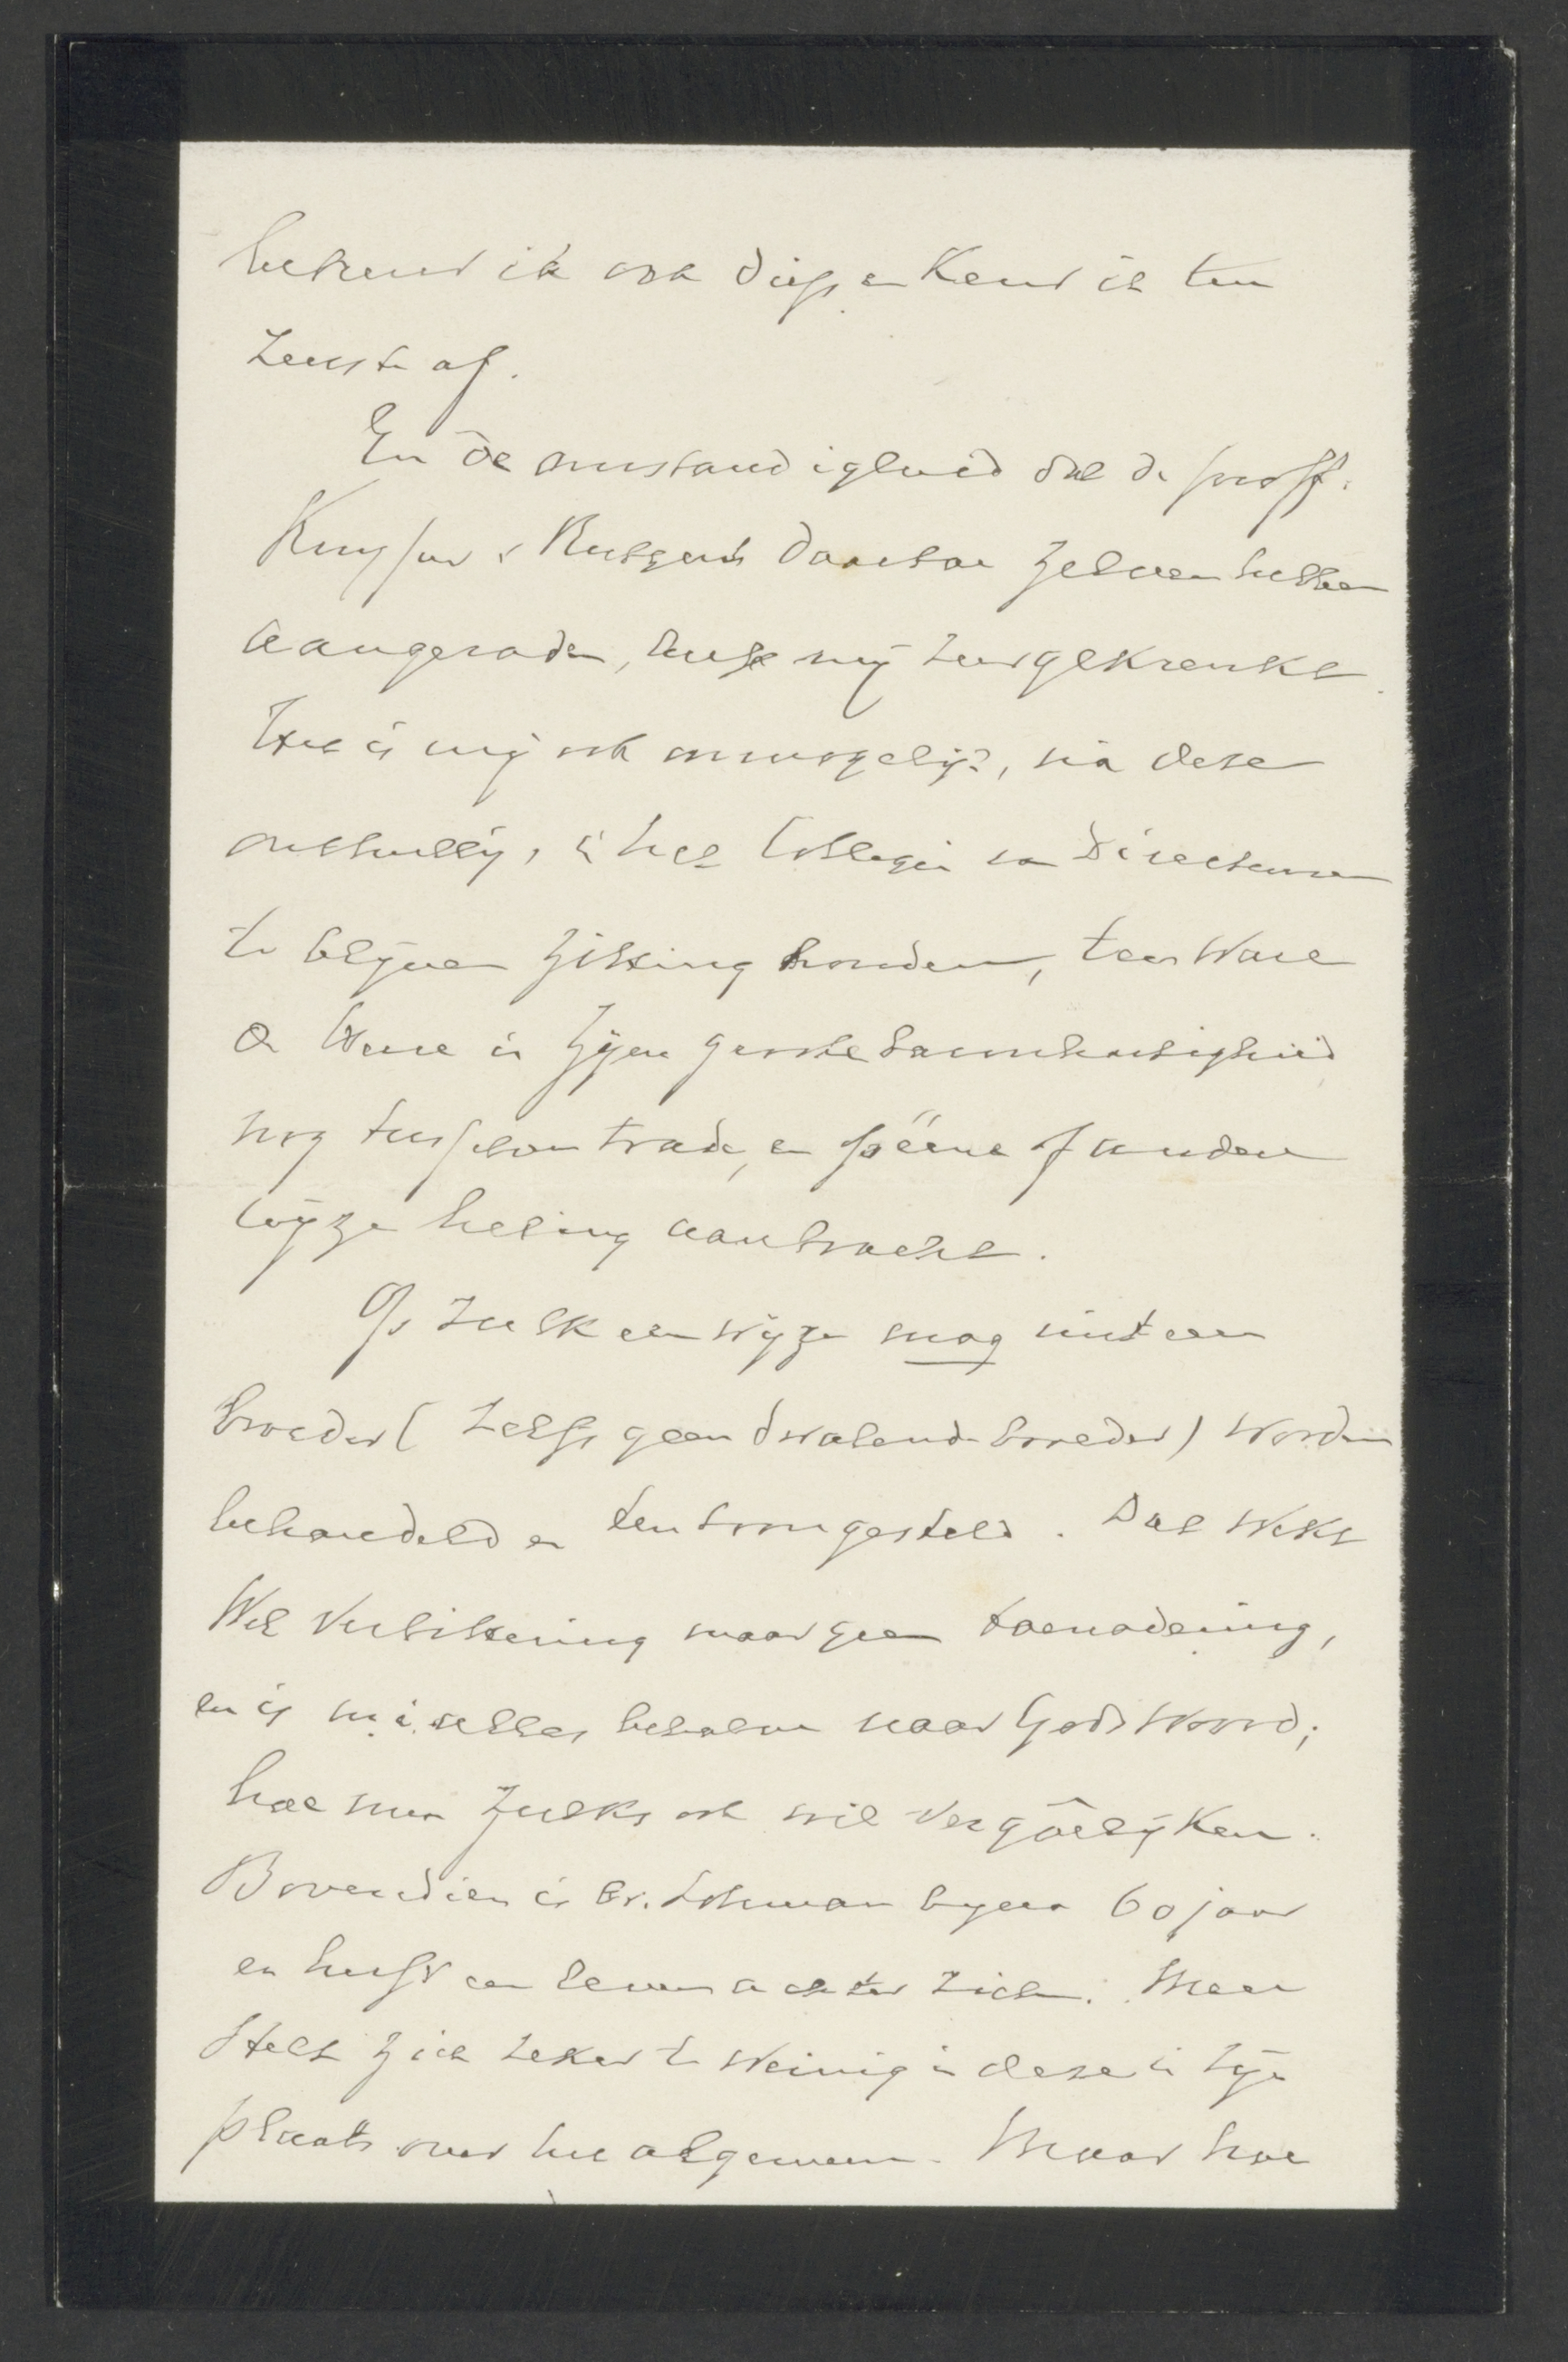 betreur ik ook diep en keur ik ten
zeerste af.
En de omstandigheid dat de proff.
Kuyper & Rutgers daartoe zelven hebben
aangeraden, heeft mij zeer gekrenkt.
Het is mij ook onmogelijk, na deze
in het Collegie van Directeuren
te blijven zitting houden, ten ware
de Heere in Zijn groote barmhartigheid
nog tusschen trade, en op éene of andere
wijze heling aanbracht.
Op zulk een wijze mag niet een
broeder (zelfs geen dwalende broeder) worden
behandeld en ten toon gesteld. Dat wekt
wel verbittering maar geen toenadering,
en is alles behalve naar Gods Woord;
hoe men zulks ook wil vergoêlijken.
Bovendien is Br. Lohman bijna 60 jaar
en heeft een leven achter zich. Men
stelt zich zeker te weinig in deze in zijn
plaats over het algemeen. Maar hoe